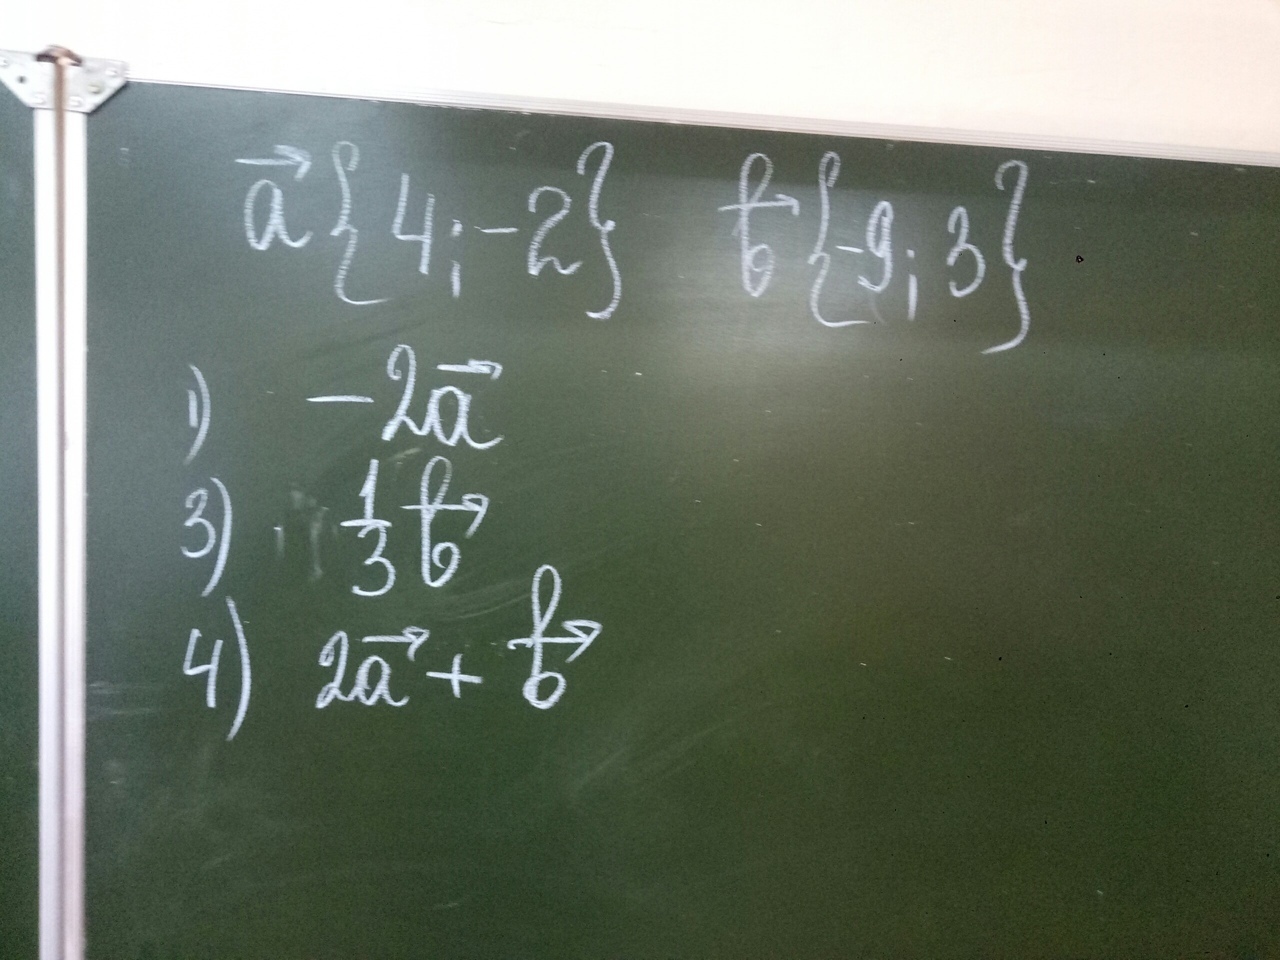 a⃗ {4; -2} b⃗ {-9; 3}
1) -2a⃗
3) 1/3 b⃗
4) 2a⃗ + b⃗